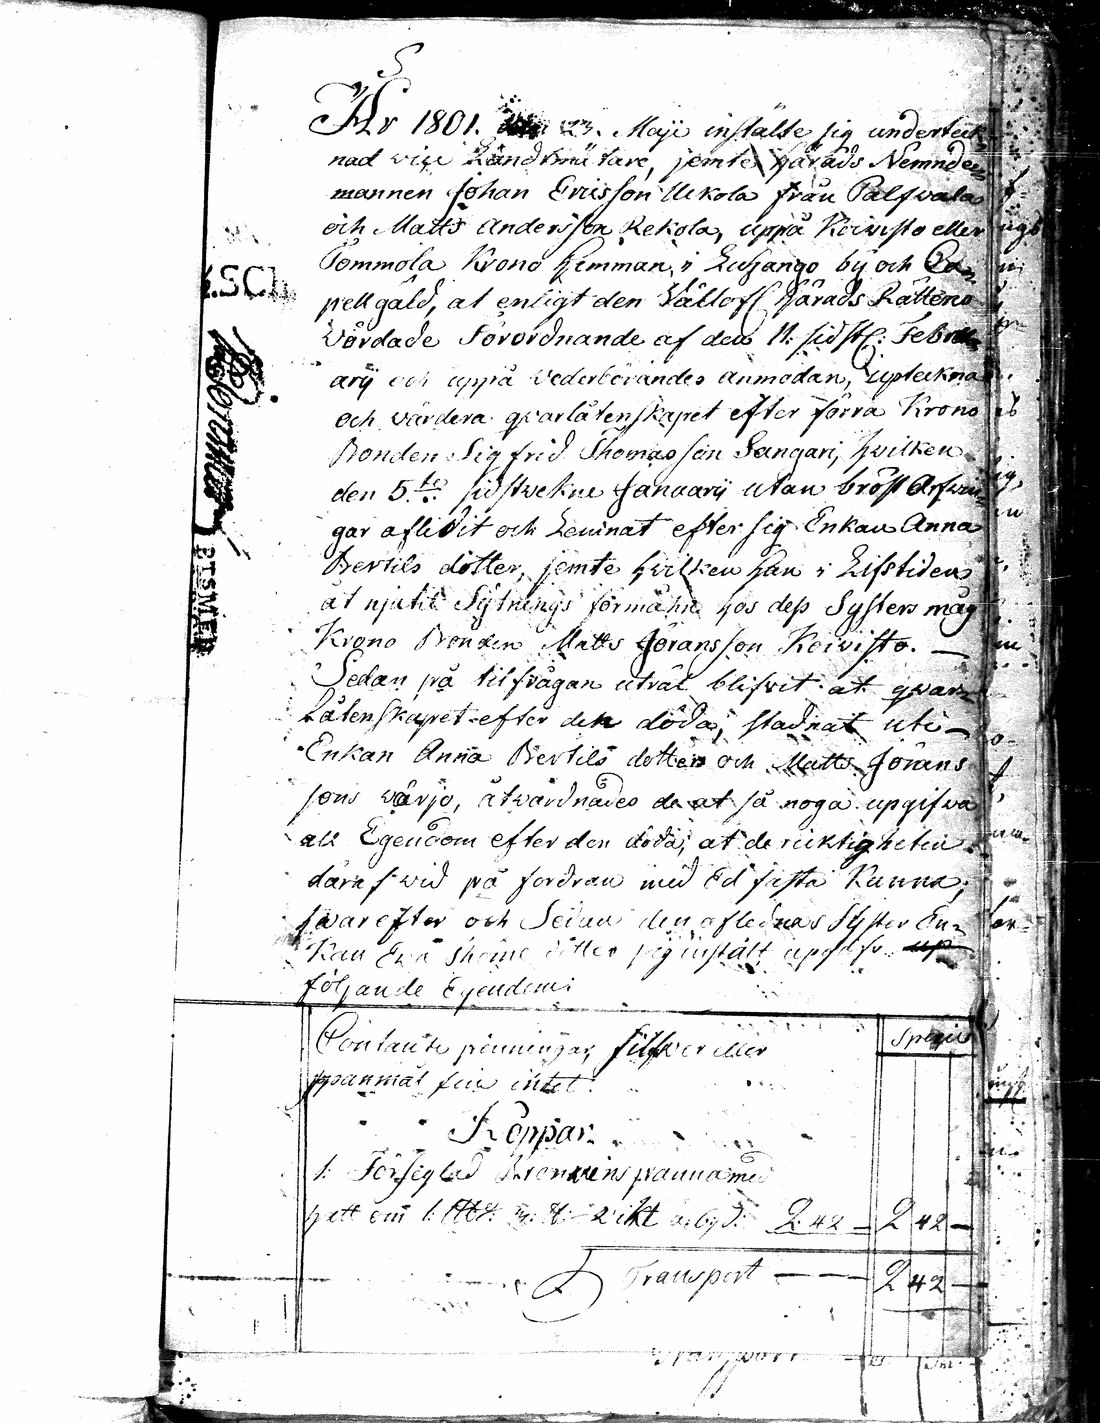 År 1801. den 23. Maji instälte sig underteck-
nad vice Landtmätare, jemte Härads Nemnde-
mannen Johan Ericsson Ukola från Palfwala
och Matts Andersson Rekola, uppå Koivisto eller
Tömmola Krono Hemman, i Luhango by och Ca-
pellgäld, at enligt den Vällofl. Härads Rättens
Vördade Förordnande af den 11. sidstl. Febru-
arij och uppå vederbörandes anmodan, upteckna
och värdera qvarlåtenskapet efter förra Krono
Bonden Sigfrid Thomasson Sangari, hvilken
den 5.te sidstvekne Januarij utan bröst Arfwin-
gar aflidit och Lemnat efter sig Enkan Anna
Bertils dotter, jemte hvilken han i Lifstiden
åtnjutit Sytnings förmåhn hos dess Systers måg
Krono Bonden Matts Göransson Koivisto. —
Sedan på tilfrågan utrönt blifvit at qvar-
Låtenskapet efter den döda, stadnat uti —
Enkan Anna Bertils dotter och Matts Görans
sons wärjo, åtvarnades de at så noga upgifwa
all Egendom efter den döda, at de ricktigheten
däraf wid på fordran med Ed fästa Kunna;
hwarefter och Sedan den aflednas Syster En-
kan Ewa Thoms dotter sig inställt, upgafs
följande Egendom:
Contante penningar, silfwer eller
spanmål fins intet. Specie
Koppar.
1: Förseglad Brenvins panna med
hatt om 2:42 — 2 42 —
Transport — — — 2 42 —
Transport